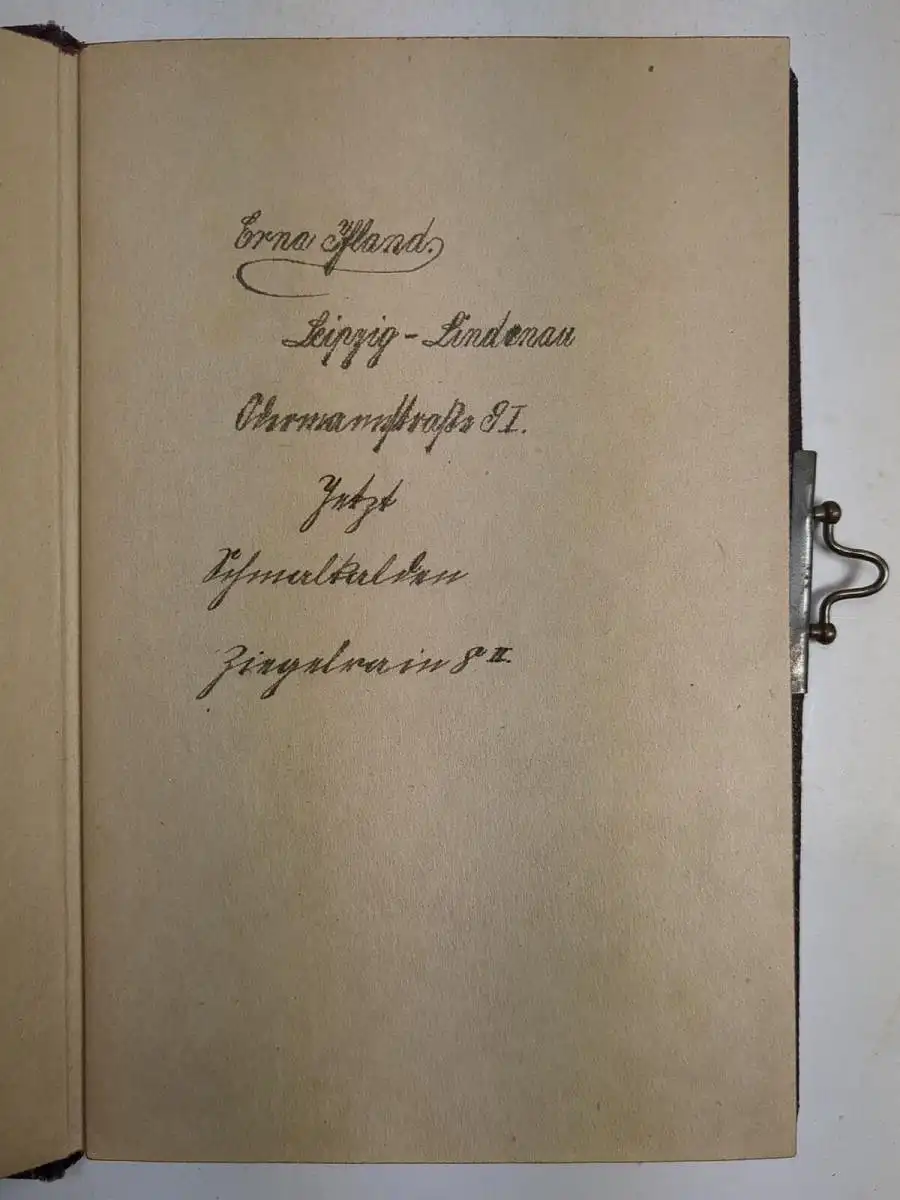 Erna Ifland.
Leipzig - Lindenau
Odermannstraße 9 I.
Jetzt
Schmalkalden
Ziegelrain 8 II.